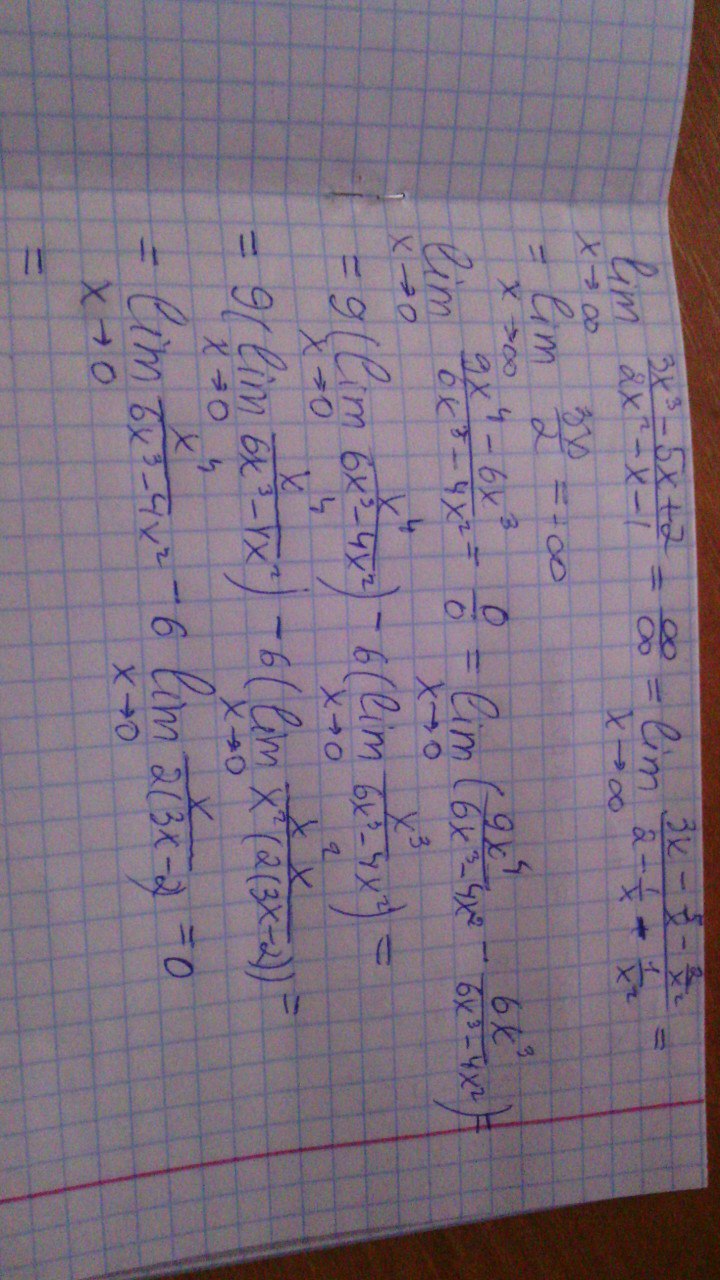 lim x→∞ (3x³ - 5x + 2)/(2x² - x - 1) = ∞/∞ = lim x→∞ (3x - 5/x - 2/x²)/(2 - 1/x - 1/x²) =
= lim x→∞ 3x/2 = -∞
lim x→0 (9x⁴ - 6x³)/(6x³ - 4x²) = 0/0 = lim x→0 (9x⁴/(6x³ - 4x²) - 6x³/(6x³ - 4x²)) =
= 9(lim x→0 x⁴/(6x³ - 4x²)) - 6(lim x→0 x³/(6x³ - 4x²)) =
= 9(lim x→0 x⁴/(6x³ - 4x²)) - 6(lim x→0 x² x/(x²(2(3x - 2)))) =
= lim x→0 x⁴/(6x³ - 4x²) - 6 lim x→0 x/(2(3x - 2)) = 0
=